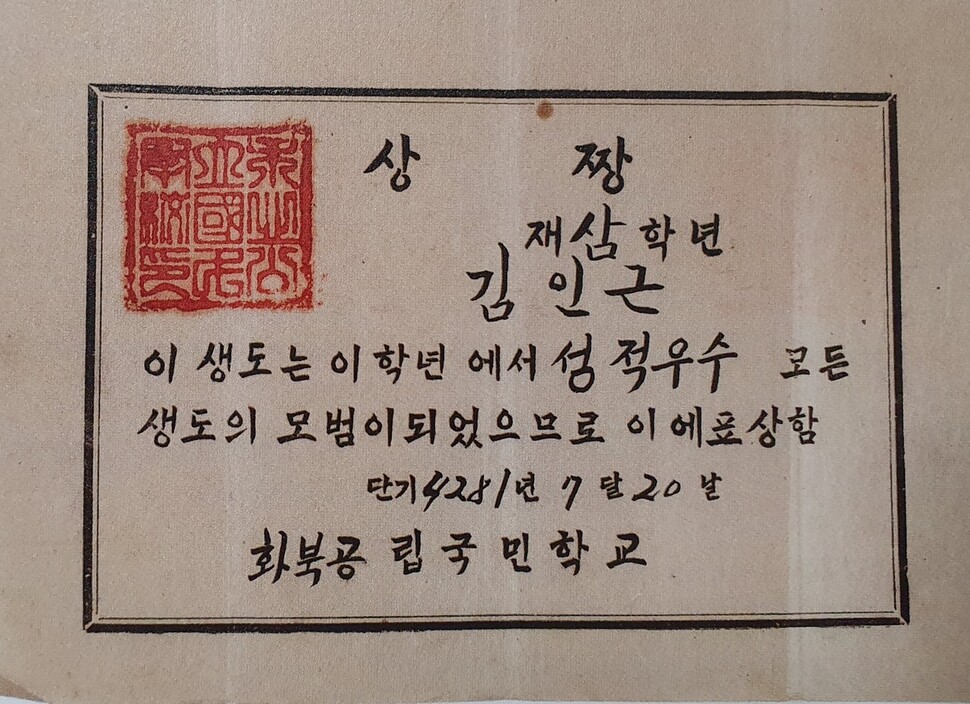 상 짱
재삼학년
김인근
이 생도는 이학년 에서 섬적우수 모든
생도의 모범이되었으므로 이에표상함
단기4281년 7달20날
화북공립국민학교